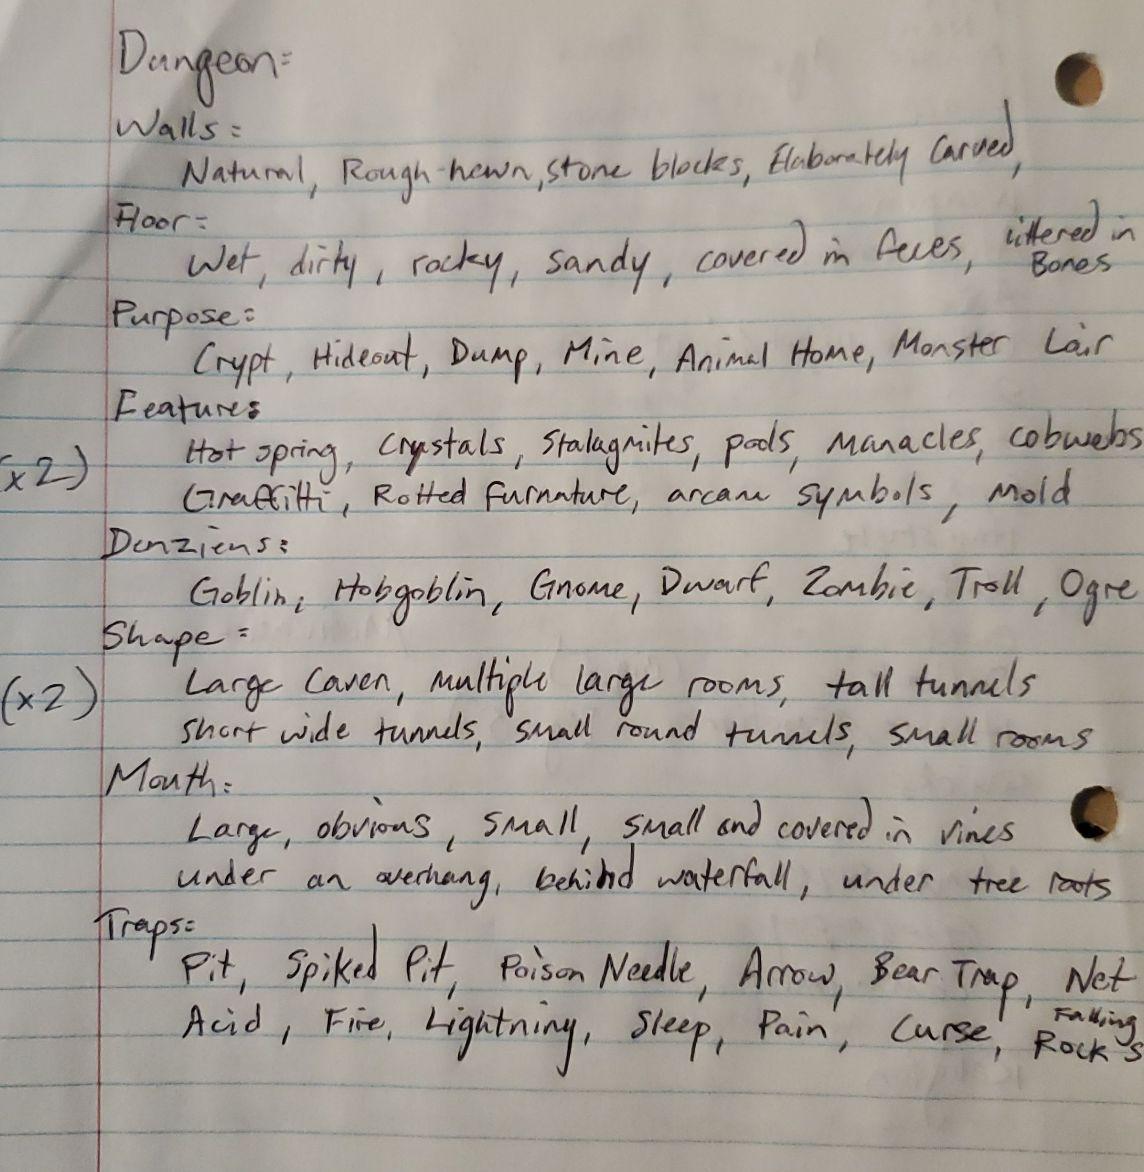 Dungeon:
Walls:
Natural, Rough-hewn, stone blocks, Elaborately Carved,
Floor:
Wet, dirty, rocky, sandy, covered in feces, littered in Bones
Purpose:
Crypt, Hideout, Dump, Mine, Animal Home, Monster Lair
Features
(x2) Hot spring, Crystals, Stalagmites, pools, Manacles, cobwebs
Graffitti, Rotted furnature, arcane symbols, Mold
Denziens:
Goblin, Hobgoblin, Gnome, Dwarf, Zombie, Troll, Ogre
Shape:
(x2) Large Caven, multiple large rooms, tall tunnels
short wide tunnels, small round tunnels, small rooms
Mouth:
Large, obvious, small, small and covered in vines
under an overhang, behind waterfall, under tree roots
Traps:
Pit, Spiked Pit, Poison Needle, Arrow, Bear Trap, Net
Acid, Fire, Lightning, Sleep, Pain, Curse, Falling Rocks